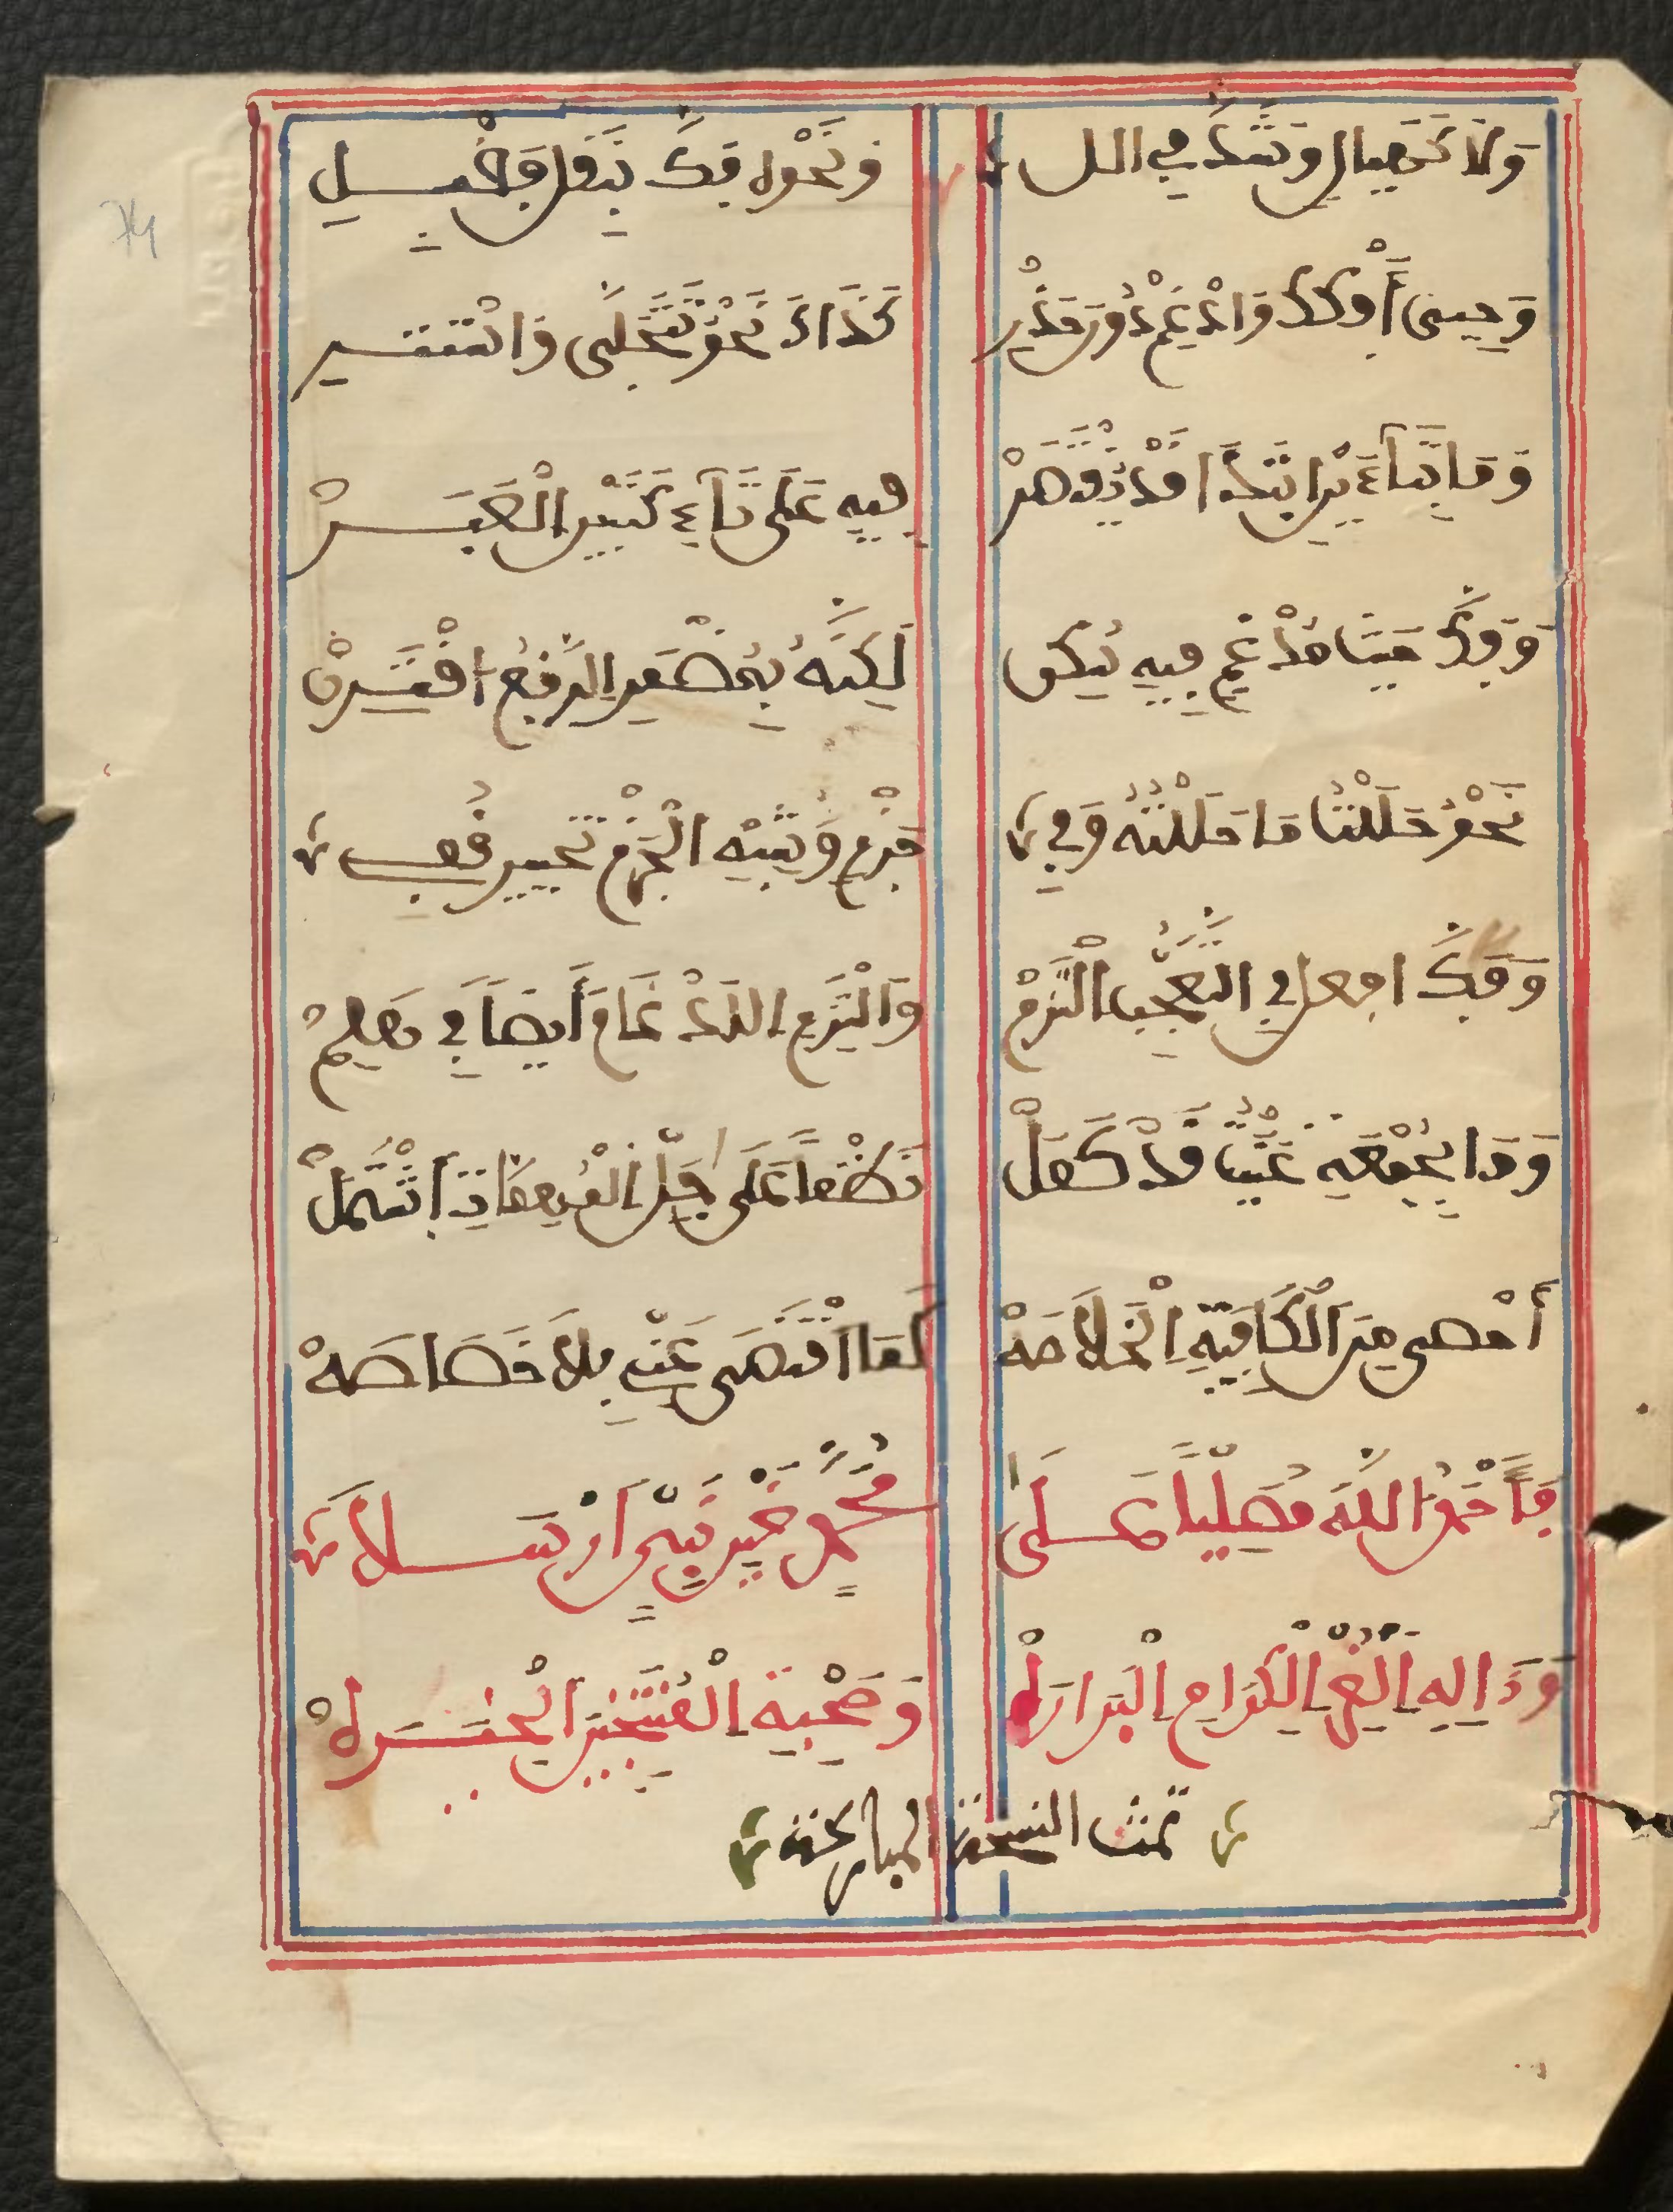 وَلَا كَهَيْلَلٍ وَشَذَّ فِي أَلِلْ وَنَحْوِهِ فَكٌّ بِنَقْلٍ فَقُبِلْ
وَحَيِيَ أَفْكُكْ وَادَّغِمْ دُونَ حَذَرْ كَذَاكَ نَحْوُ تَتَجَلَّى وَاسْتَتَرْ
وَمَا بِتَاءَيْنِ ابْتُدًا قَدْ يُقْتَصَرْ فِيهِ عَلَى تَاءٍ كَتَبَيَّنُ الْعِبَرْ
وَفُكَّ حَيْثُ مُدْغَمٌ فِيهِ سَكَنْ لِكَوْنِهِ بِمُضْمَرِ الرَّفْعِ اقْتَرَنْ
نَحْوُ حَلَلْتُ مَا حَلَلْتَهُ وَفِي جَزْمٍ وَشِبْهِ الْجَزْمِ تَخْيِيرٌ قُفِي
وَفَكُّ افْعِلْ فِي التَّعَجُّبِ الْتُزِمْ وَالْتُزِمَ الِادْغَامُ أَيْضًا فِي هَلُمْ
وَمَا بِجَمْعِهِ عُنِيتُ قَدْ كَمَلْ نَظْمًا عَلَى جُلِّ الْمُهِمَّاتِ اشْتَمَلْ
أَحْصَى مِنَ الْكَافِيَةِ الْخُلَاصَهْ كَمَا اقْتَضَى غِنًى بِلَا خَصَاصَهْ
فَأَحْمَدُ اللَّهَ مُصَلِّيًا عَلَى مُحَمَّدٍ خَيْرِ نَبِيٍّ أُرْسِلَا
وَءَالِهِ الْغُرِّ الْكِرَامِ الْبَرَرَهْ وَصَحْبِهِ الْمُنْتَخَبِينَ الْخِيَرَهْ
تمت النسخة المباركة